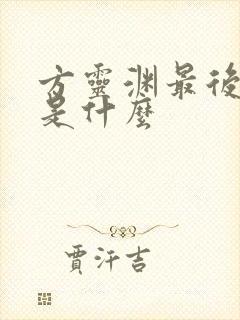 方靈渊最後
是什麼
賈汗吉